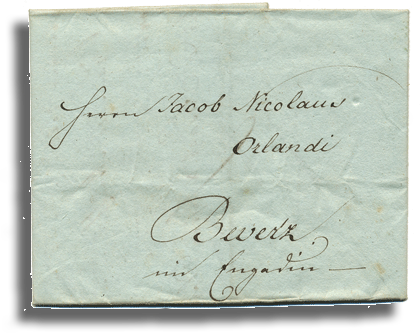 Herrn Jacob Nicolaus
Orlandi
Beverz
im Engadin